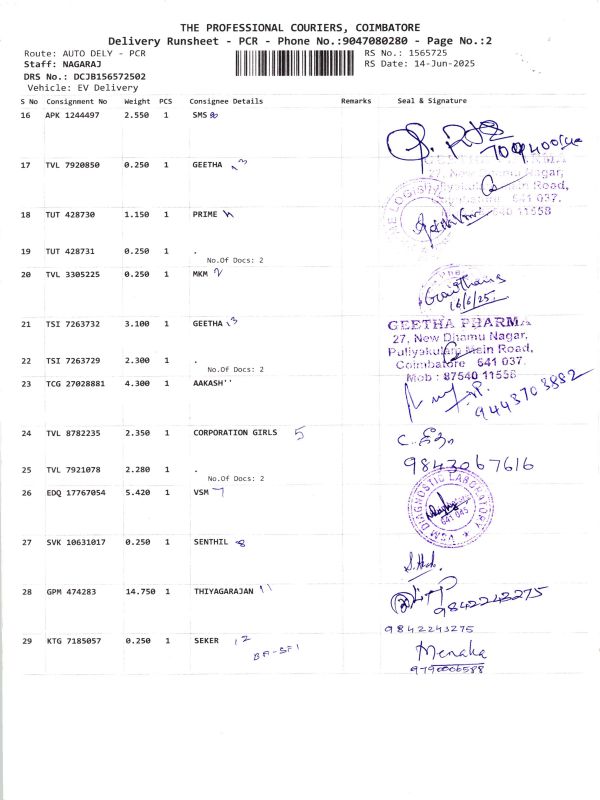 THE PROFESSIONAL COURIERS, COIMBATORE
Delivery Runsheet - PCR - Phone No.:9047080280 - Page No.:2
Route: AUTO DELY - PCR RS No.: 1565725
Staff: NAGARAJ RS Date: 14-Jun-2025
DRS No.: DCJB156572502
Vehicle: EV Delivery
S No Consignment No Weight PCS Consignee Details Remarks Seal & Signature
16 APK 1244497 2.550 1 SMS 8
17 TVL 7920850 0.250 1 GEETHA 3
27, New Dhamu Nagar,
Puliyakulam Main Road,
Coimbatore 641 037.
18 TUT 428730 1.150 1 PRIME
19 TUT 428731 0.250 1 .
No.Of Docs: 2
20 TVL 3305225 0.250 1 MKM 2
16/6/25
21 TSI 7263732 3.100 1 GEETHA 13
GEETHA PHARMA
27, New Dhamu Nagar,
Puliyakulam Main Road,
Coimbatore 641 037.
Mob : 87540 11558
22 TSI 7263729 2.300 1 .
No.Of Docs: 2
23 TCG 27028881 4.300 1 AAKASH''
9443703882
24 TVL 8782235 2.350 1 CORPORATION GIRLS 5
9843067616
25 TVL 7921078 2.280 1 .
No.Of Docs: 2
26 EDQ 17767054 5.420 1 VSM 7
VSM DIAGNOSTIC LABORATORY
641 045
27 SVK 10631017 0.250 1 SENTHIL 8
28 GPM 474283 14.750 1 THIYAGARAJAN 11
9842243275
9842243275
29 KTG 7185057 0.250 1 SEKER 12
Menaka
9790006588